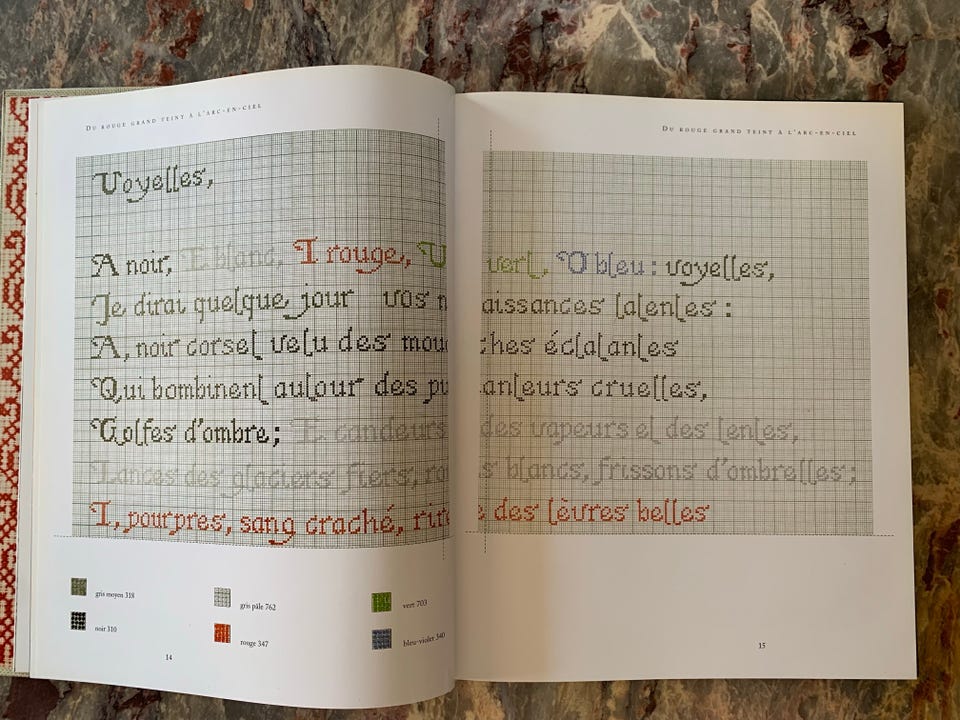 DU ROUGE GRAND TEINT À L'ARC-EN-CIEL
DU ROUGE GRAND TEINT À L'ARC-EN-CIEL
Voyelles,
A noir, E blanc, I rouge, U vert, O bleu : voyelles,
Je dirai quelque jour vos naissances latentes :
A, noir corset velu des mouches éclatantes
Qui bombinent autour des puanteurs cruelles,
Golfes d'ombre; E candeurs des vapeurs et des tentes,
Lances des glaciers fiers, rois blancs, frissons d'ombrelles;
I, pourpres, sang craché, rire des lèvres belles
gris moyen 318
gris pâle 762
vert 703
noir 310
rouge 347
bleu-violet 340
14
15